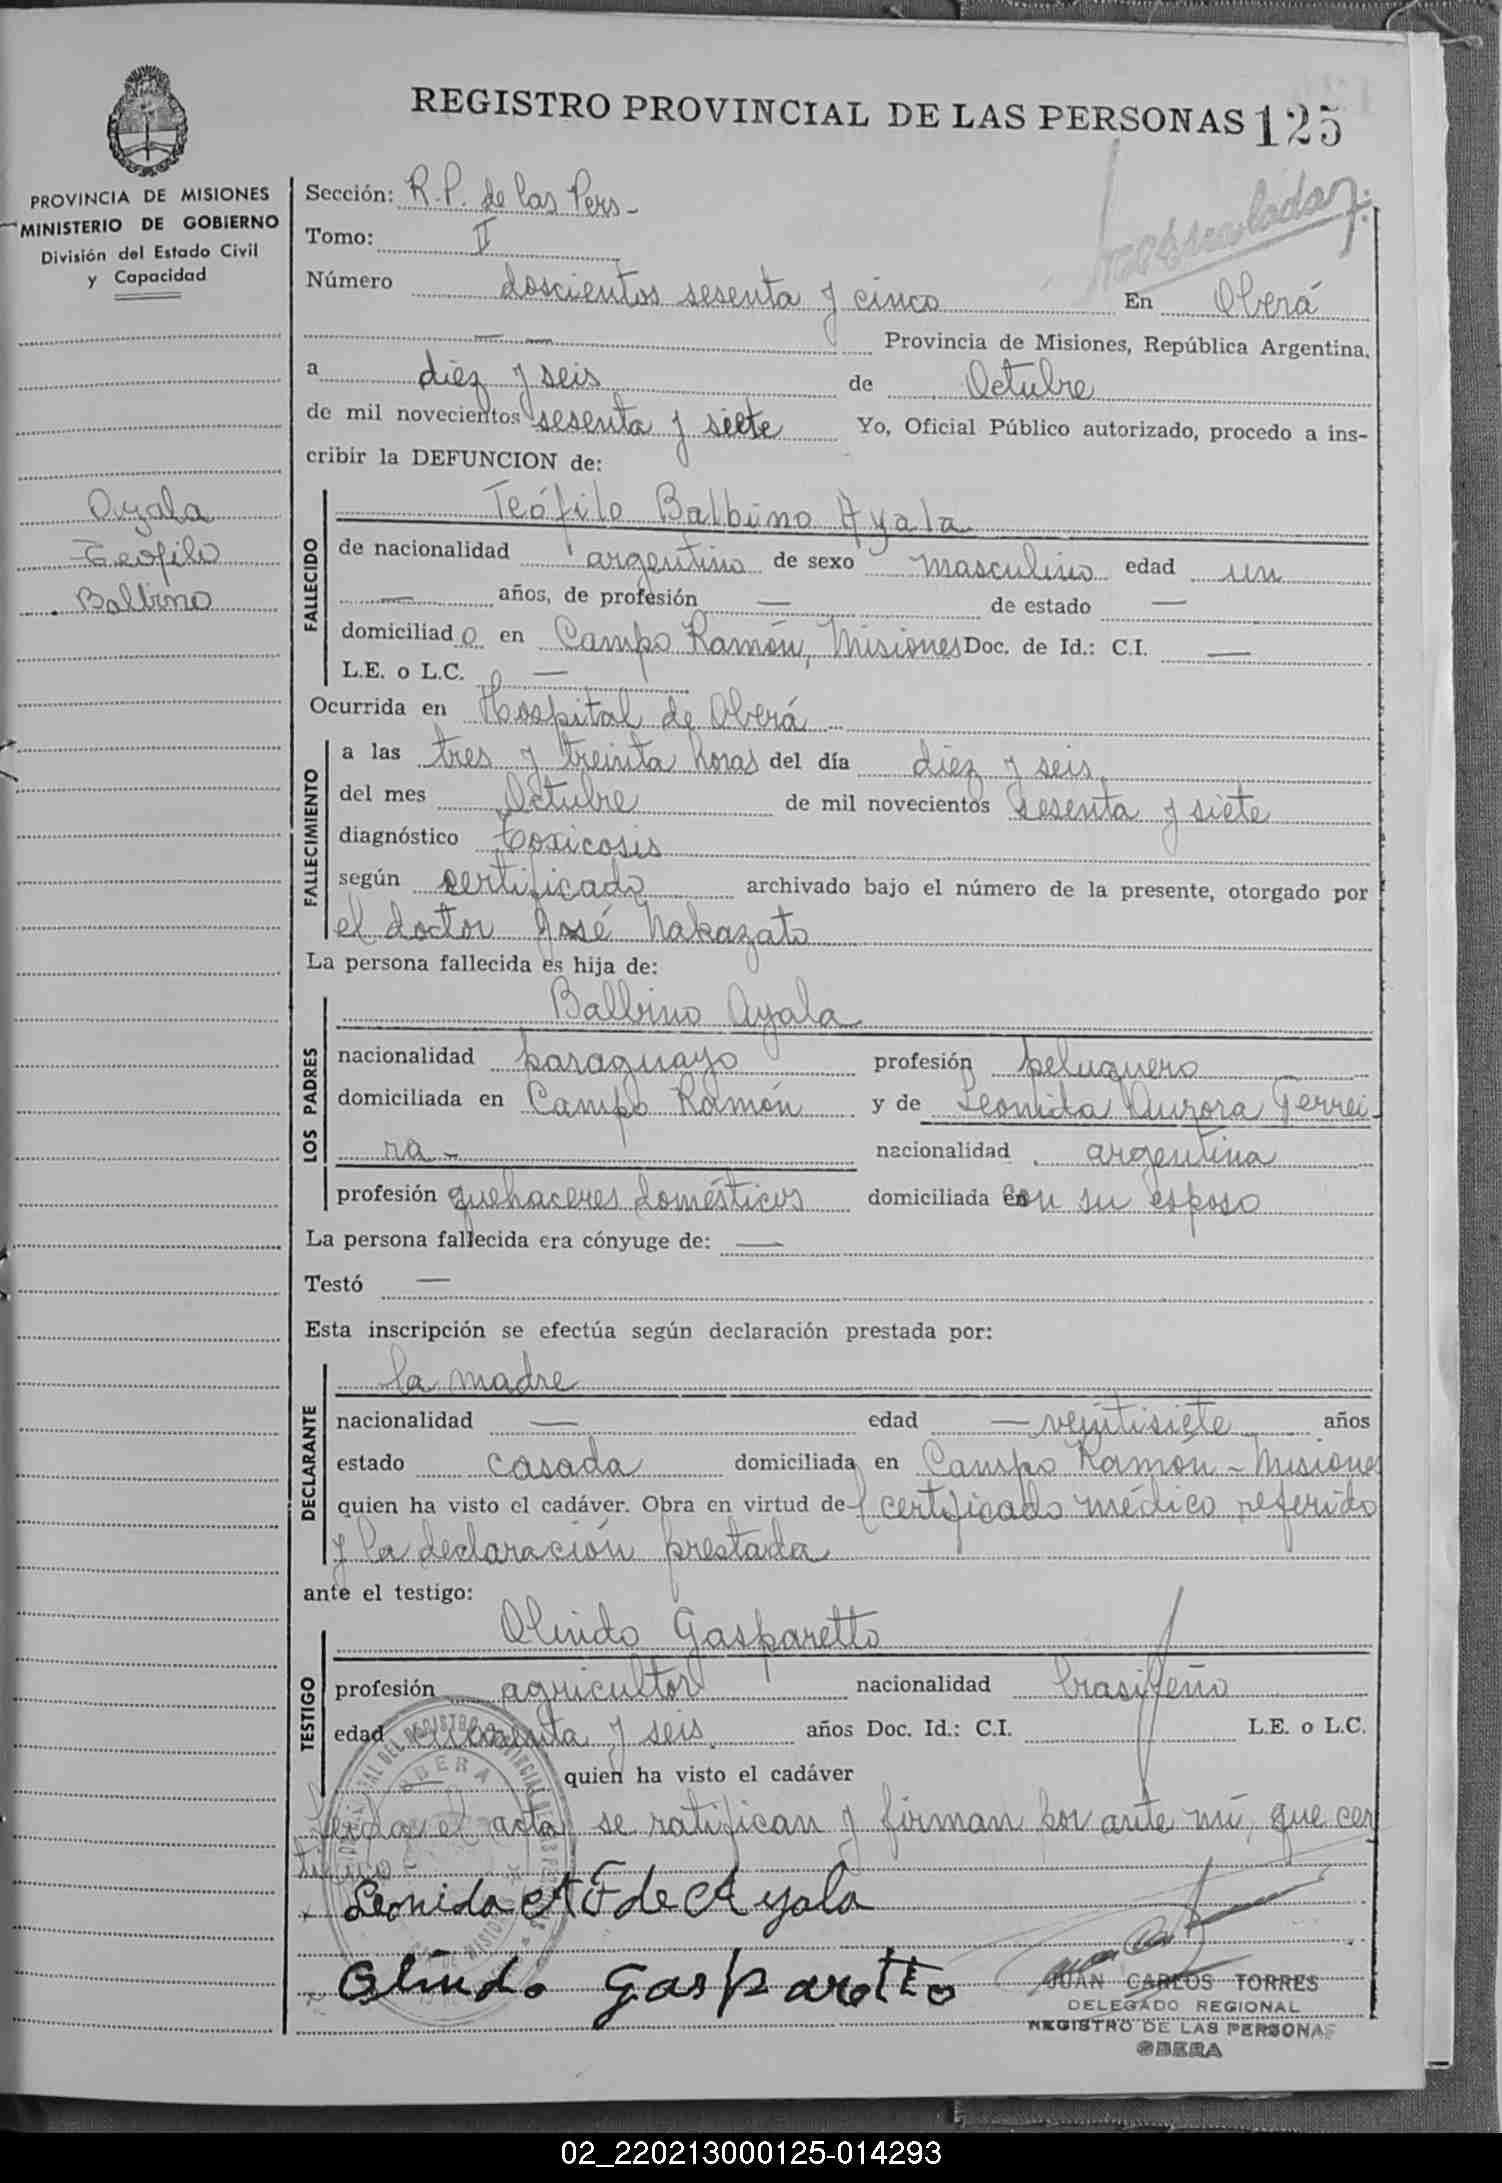 REGISTRO PROVINCIAL DE LAS PERSONAS 125
PROVINCIA DE MISIONES
MINISTERIO DE GOBIERNO
División del Estado Civil
y Capacidad
Ayala
Teofilo
Balbino
Sección: R.P. de las Pers-
Tomo: II
Número doscientos sesenta y cinco En Oberá
— — Provincia de Misiones, República Argentina,
a diez y seis de Octubre
de mil novecientos sesenta y siete Yo, Oficial Público autorizado, procedo a ins-
cribir la DEFUNCION de:
FALLECIDO
Teófilo Balbino Ayala
de nacionalidad argentino de sexo masculino edad un
— años, de profesión — de estado —
domiciliado en Campo Ramón, Misiones Doc. de Id.: C.I. —
L.E. o L.C. —
Ocurrida en Hospital de Oberá
FALLECIMIENTO
a las tres y treinta horas del día diez y seis
del mes Octubre de mil novecientos sesenta y siete
diagnóstico toxicosis
según certificado archivado bajo el número de la presente, otorgado por
el doctor José Nakazato
La persona fallecida es hija de:
LOS PADRES
Balbino Ayala
nacionalidad paraguayo profesión peluquero
domiciliada en Campo Ramón y de Leonida Aurora Ferrei-
ra-
nacionalidad argentina
profesión quehaceres domésticos domiciliada en con su esposo
La persona fallecida era cónyuge de: —
Testó —
Esta inscripción se efectúa según declaración prestada por:
DECLARANTE
la madre
nacionalidad — edad — veintisiete años
estado casada domiciliada en Campo Ramón - Misiones
quien ha visto el cadáver. Obra en virtud del certificado médico referido
y la declaración prestada
ante el testigo:
TESTIGO
Olindo Gasparetto
profesión agricultor nacionalidad brasileño
edad y seis años Doc. Id.: C.I. L.E. o L.C.
— quien ha visto el cadáver
Leída el acta se ratifican y firman por ante mí, que cer
tifico
Leonida A F de Ayala
Olindo Gasparetto
JUAN CARLOS TORRES
DELEGADO REGIONAL
REGISTRO DE LAS PERSONAS
OBERA
02_220213000125-014293